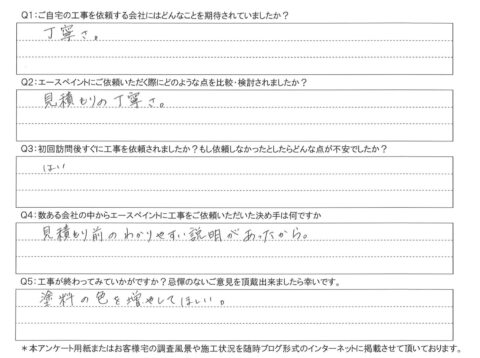 Q1:ご自宅の工事を依頼する会社にはどんなことを期待されていましたか？
丁寧さ。
Q2:エースペイントにご依頼いただく際にどのような点を比較・検討されましたか？
見積もりの丁寧さ。
Q3:初回訪問後すぐに工事を依頼されましたか？もし依頼しなかったとしたらどんな点が不安でしたか？
はい
Q4:数ある会社の中からエースペイントに工事をご依頼いただいた決め手は何ですか
見積もり前のわかりやすい説明があったから。
Q5:工事が終わってみていかがですか？忌憚のないご意見を頂戴出来ましたら幸いです。
塗料の色を増やしてほしい。
＊本アンケート用紙またはお客様宅の調査風景や施工状況を随時ブログ形式のインターネットに掲載させて頂いております。